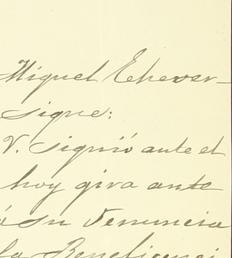 Miguel Echever-
sigue:
V. siguió ante el
hoy gira ante
á su denuncia
la Beneficenci